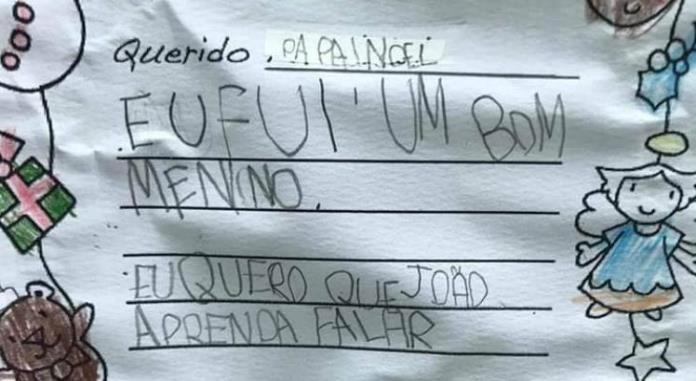 Querido PAPAI NOEL
EU FUI UM BOM
MENINO.
EU QUERO QUE JOÃO
APRENDA FALAR